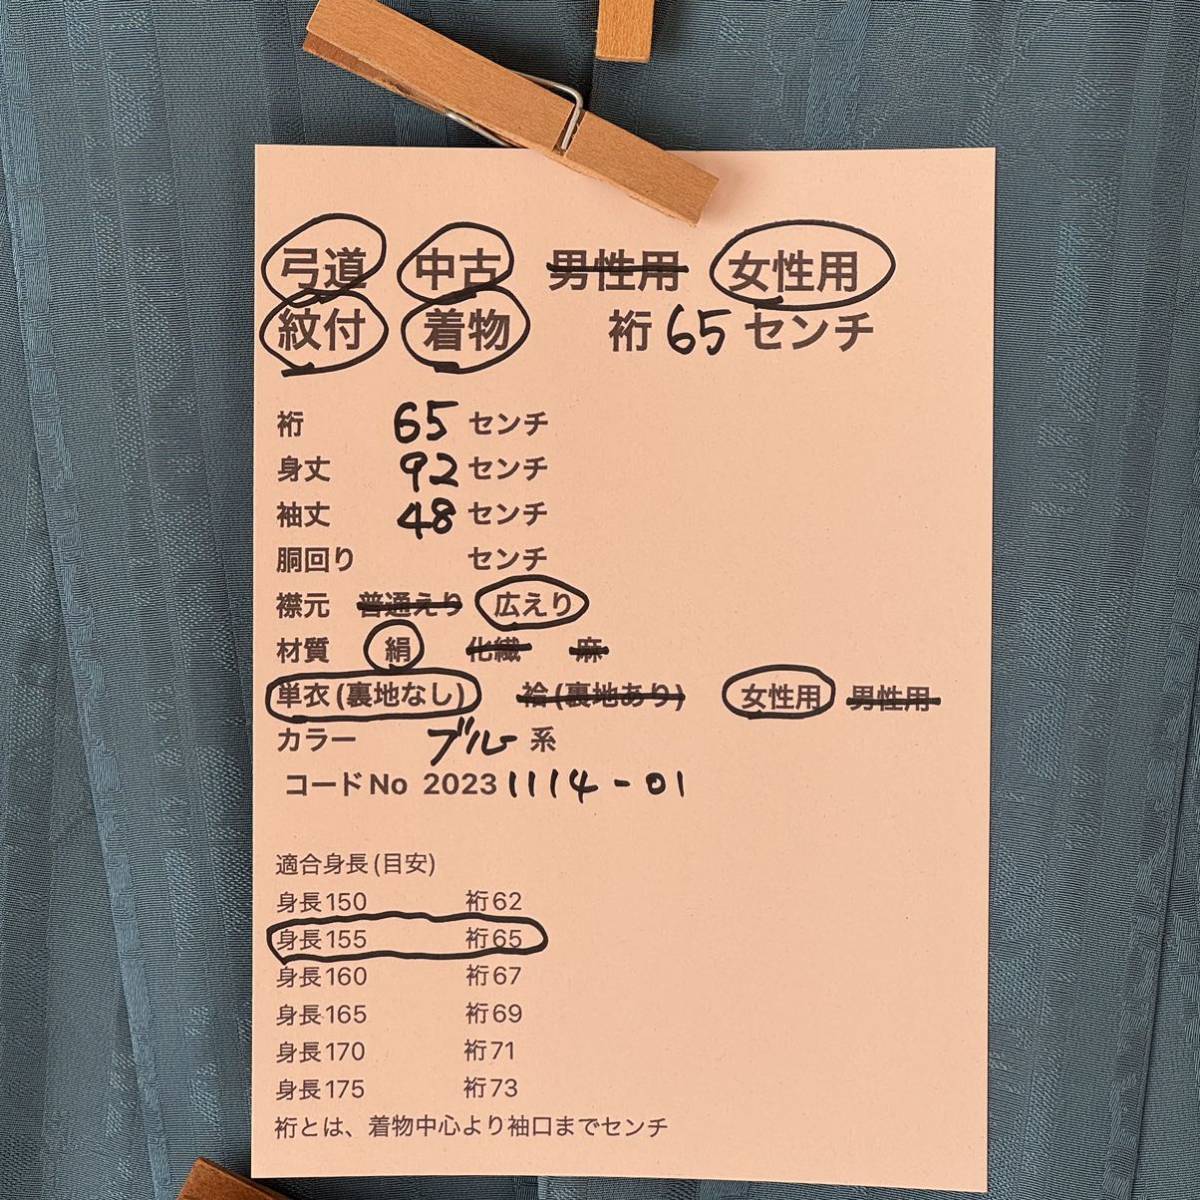 弓道 中古 男性用 女性用
紋付 着物 裄 65 センチ
裄 65 センチ
身丈 92 センチ
袖丈 48 センチ
胴回り センチ
襟元 普通えり 広えり
材質 絹 化繊 麻
単衣(裏地なし) 袷(裏地あり) 女性用 男性用
カラー ブルー 系
コードNo 20231114-01
適合身長(目安)
身長150 裄62
身長155 裄65
身長160 裄67
身長165 裄69
身長170 裄71
身長175 裄73
裄とは、着物中心より袖口までセンチ